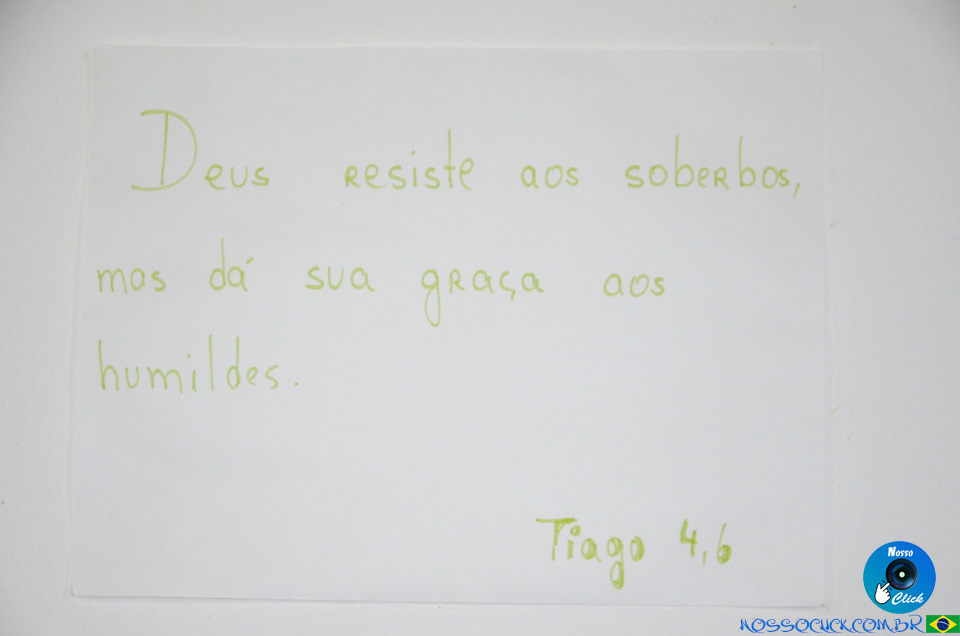 Deus resiste aos soberbos,
mas dá sua graça aos
humildes.
Tiago 4,6
Nosso
Click
NOSSOCLICK.COM.BR